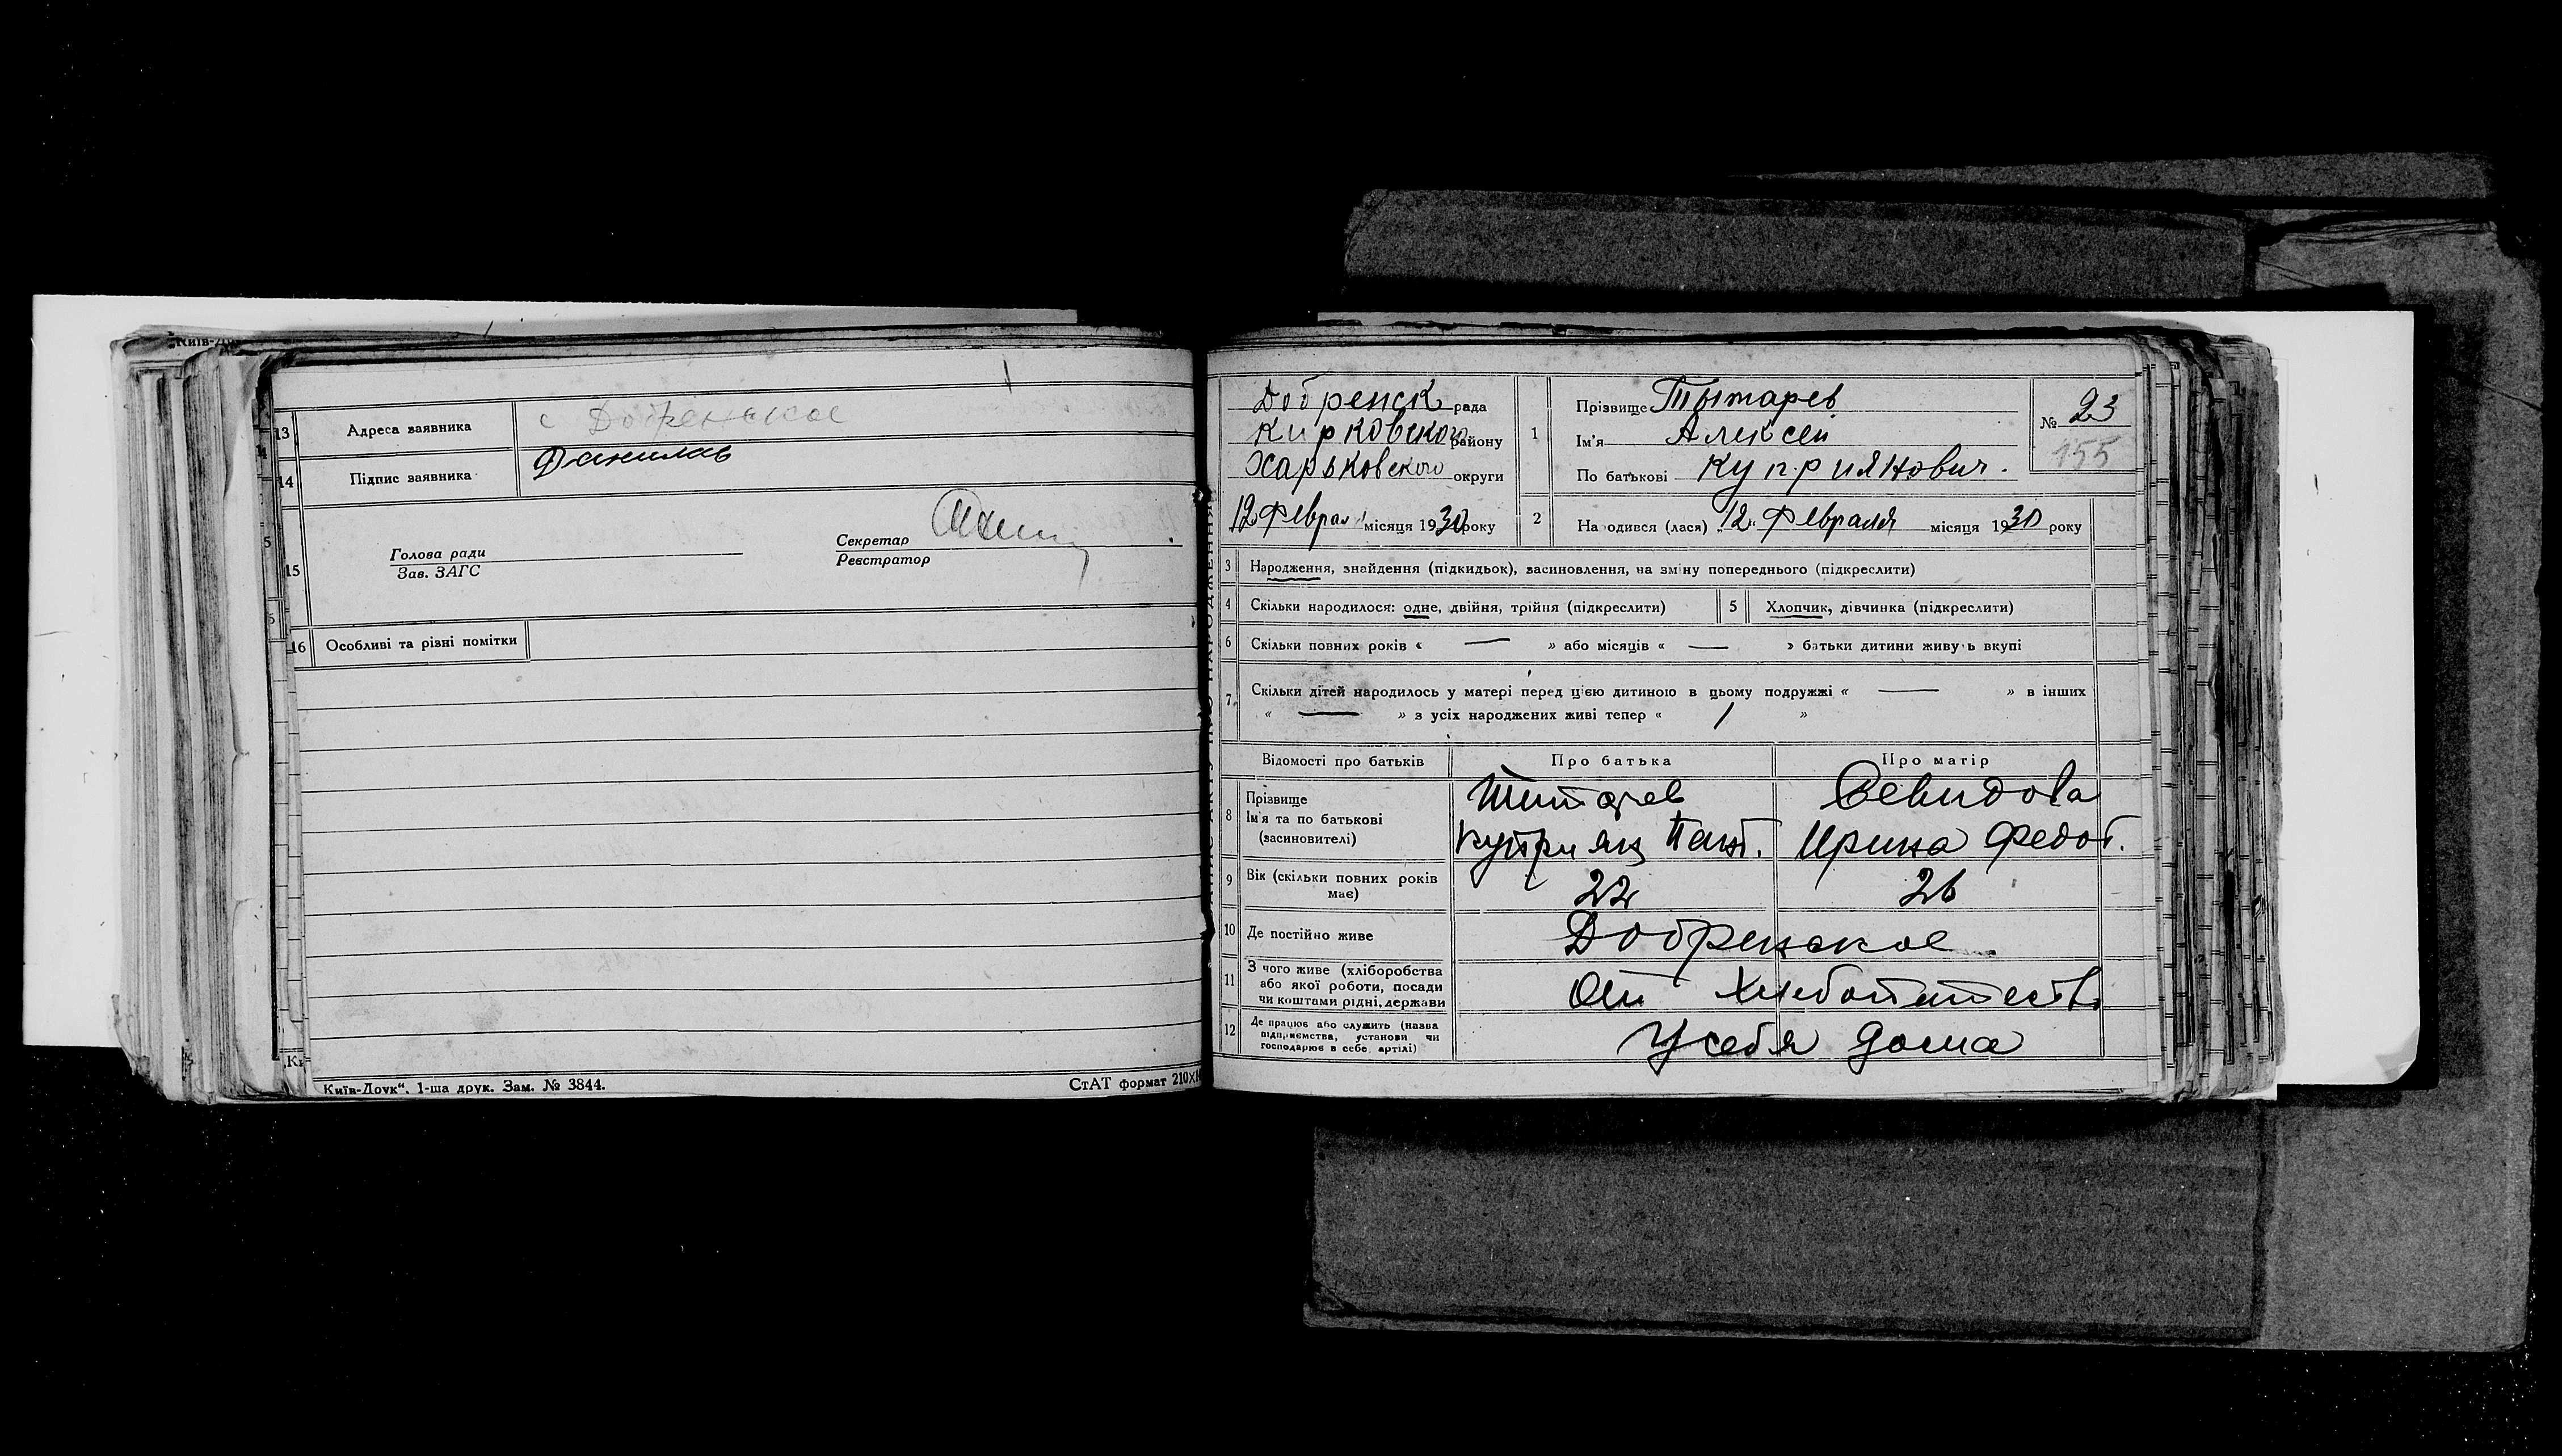 „Київ-Др
13 Адреса заявника с Добренское
14 Підпис заявника Данилов
15 Голова ради
Зав. ЗАГС
Секретар
Реєстратор
16 Особливі та різні помітки
Київ-Друк“, 1-ша друк. Зам. № 3844.
СтАТ формат 210×1
Добренск рада
Кирковского району
Харьковского округи
12 Феврал місяця 1930 року
1 Прізвище Тытарев
Ім'я Алексей
По батькові Куприянович.
№ 23
155
2 Народився (лася) „12„ Февраля місяця 1930 року
3 Народження, знайдення (підкидьок), засиновлення, на зміну попереднього (підкреслити)
4 Скільки народилося: одне, двійня, трійня (підкреслити)
5 Хлопчик, дівчинка (підкреслити)
6 Скільки повних років « — » або місяців « — » батьки дитини живуть вкупі
7. Скільки дітей народилось у матері перед цією дитиною в цьому подружжі « — » в інших
« — » з усіх народжених живі тепер « 1 »
Відомості про батьків Про батька Про матір
8 Прізвище
Ім'я та по батькові
(засиновителі)
Титарев
Куприян Пант.
Севидова
Ирина Федот.
9 Вік (скільки повних років
має)
22 26
10 Де постійно живе Добренское
11 З чого живе (хліборобства
або якої роботи, посади
чи коштами рідні, держави
От Хлебопашеств.
12 Де працює або служить (назва
підприємства, установи чи
господарює в себе, артілі)
У себя дома